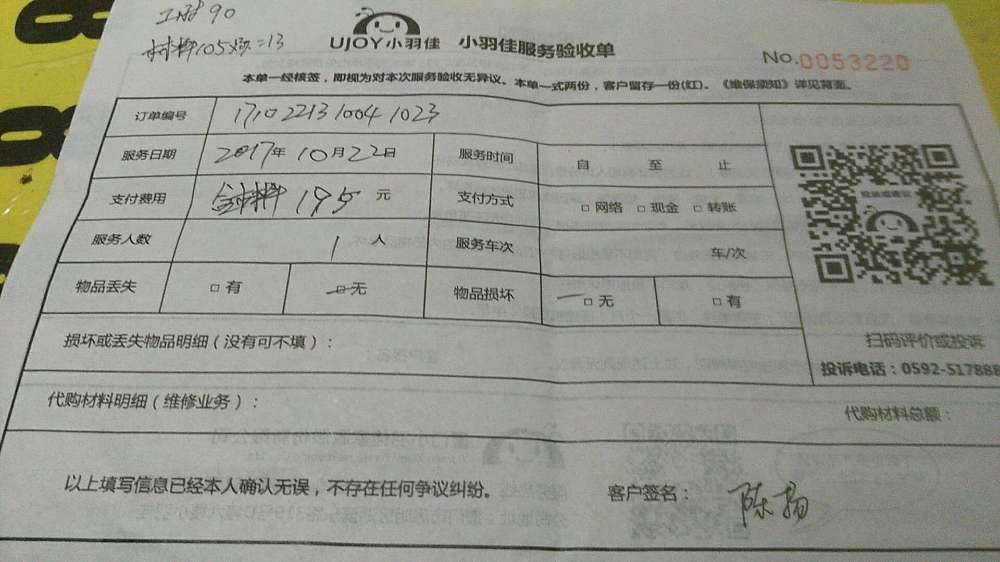 工时90
材料105
UJOY小羽佳 小羽佳服务验收单
No.0053220
本单一经核签，即视为对本次服务验收无异议。本单一式两份，客户留存一份(红)。《维保须知》详见背面。
订单编号 171022131004 1023
服务日期 2017年10月22日 服务时间 自 至 止
支付费用 195 元 支付方式 □网络 □现金 □转账
服务人数 1 人 服务车次 车/次
物品丢失 □有 □无 物品损坏 □无 □有
损坏或丢失物品明细（没有可不填）：
扫码评价或投诉
投诉电话：0592-517888
代购材料明细（维修业务）： 代购材料总额：
以上填写信息已经本人确认无误，不存在任何争议纠纷。 客户签名： 陈扬